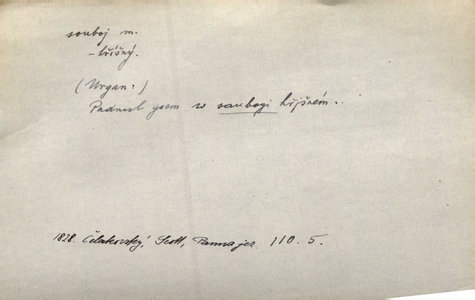 souboj m.
- hříšný.
(Urgan:)
Padnul gsem w saubogi hřjšném..
1828. Čelakovský, Scott, Panna jez. 110. 5.